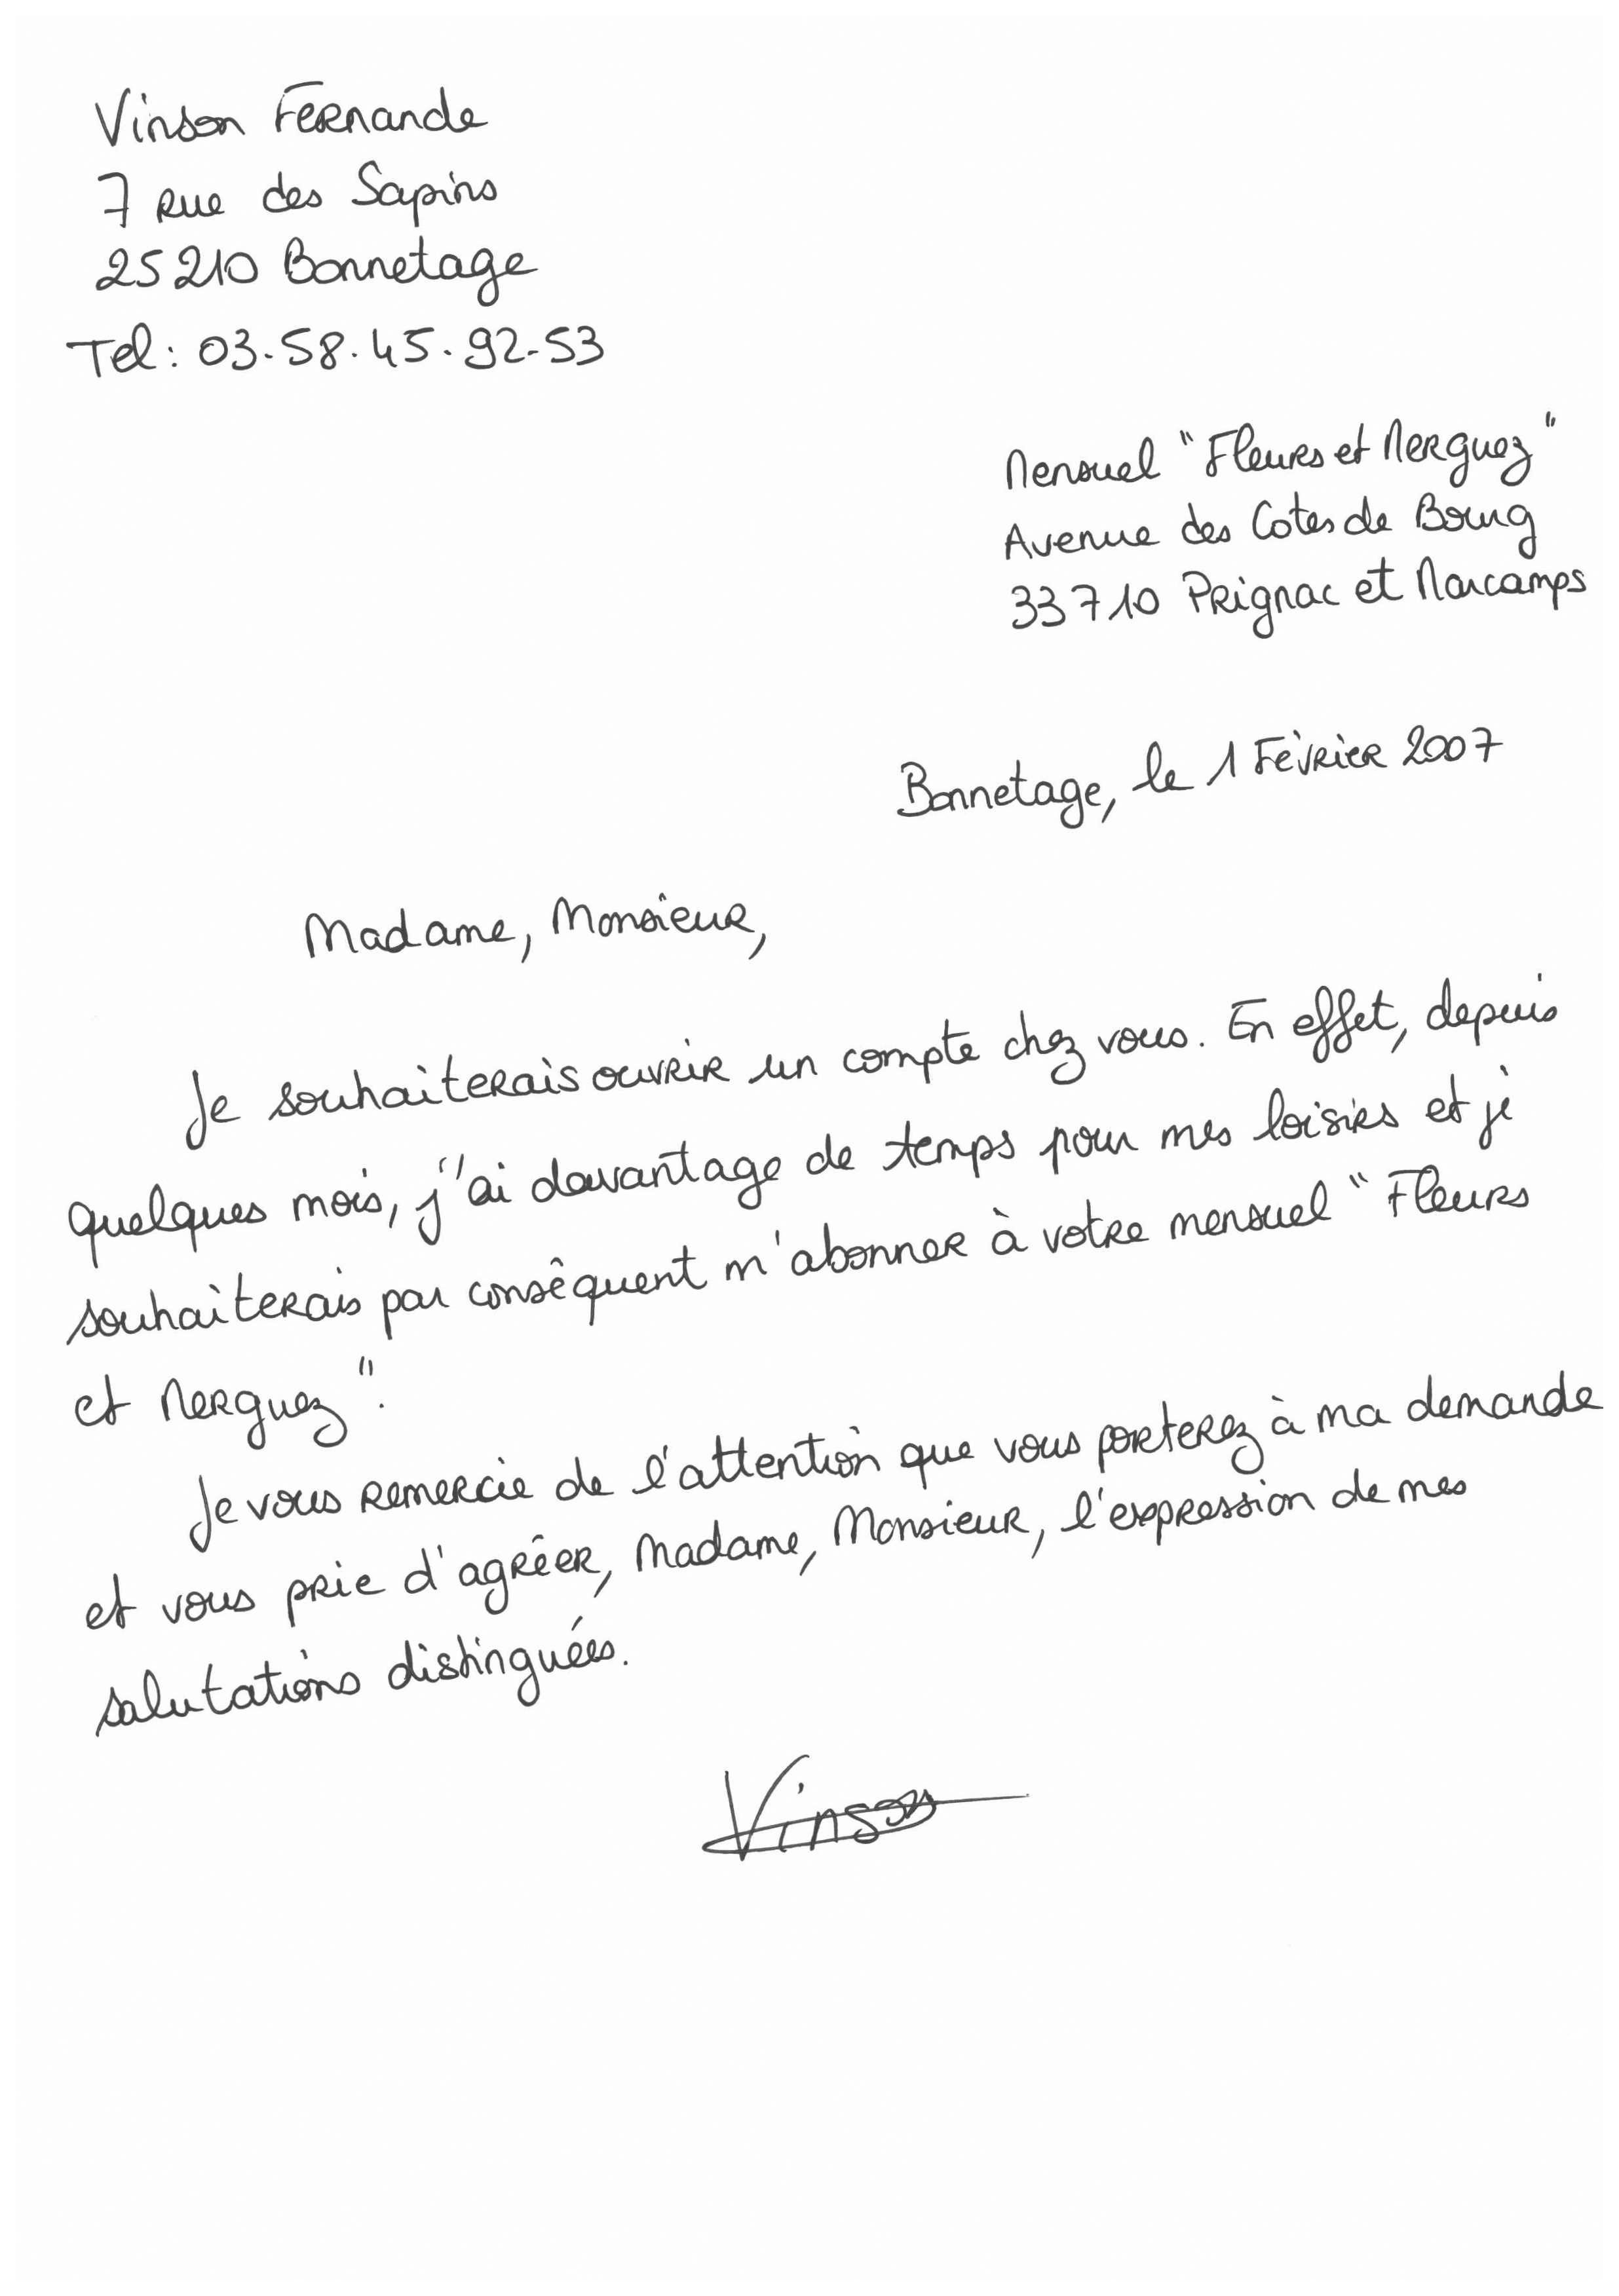 Vinson Fernande
7 rue des Sapins
25210 Bonnetage
Tel: 03.58.45.92.53
Mensuel "Fleurs et Merguez"
Avenue des Cotes de Bourg
33710 Prignac et Marcamps
Bonnetage, le 1 Février 2007
Madame, Monsieur,
Je souhaiterais ouvrir un compte chez vous. En effet, depuis
quelques mois, j'ai davantage de temps pour mes loisirs et je
souhaiterais par conséquent m'abonner à votre mensuel "Fleurs
et Merguez".
Je vous remercie de l'attention que vous porterez à ma demande
et vous prie d'agréer, Madame, Monsieur, l'expression de mes
salutations distinguées.
Vinson